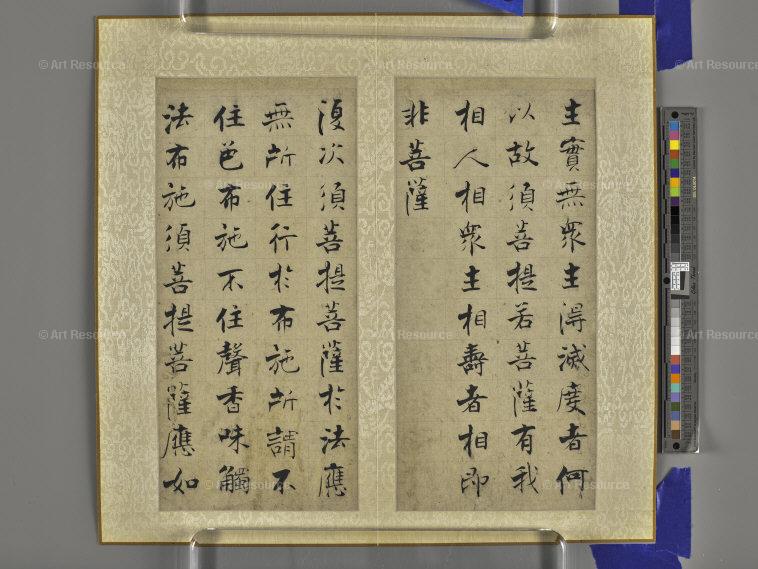 生實無衆生得滅度者何
以故須菩提若菩薩有我
相人相衆生相壽者相即
非菩薩
復次須菩提菩薩於法應
無所住行於布施所謂不
住色布施不住聲香味觸
法布施須菩提菩薩應如
© Art Resource
© Art Resource
© Art Resource
© Art Resource